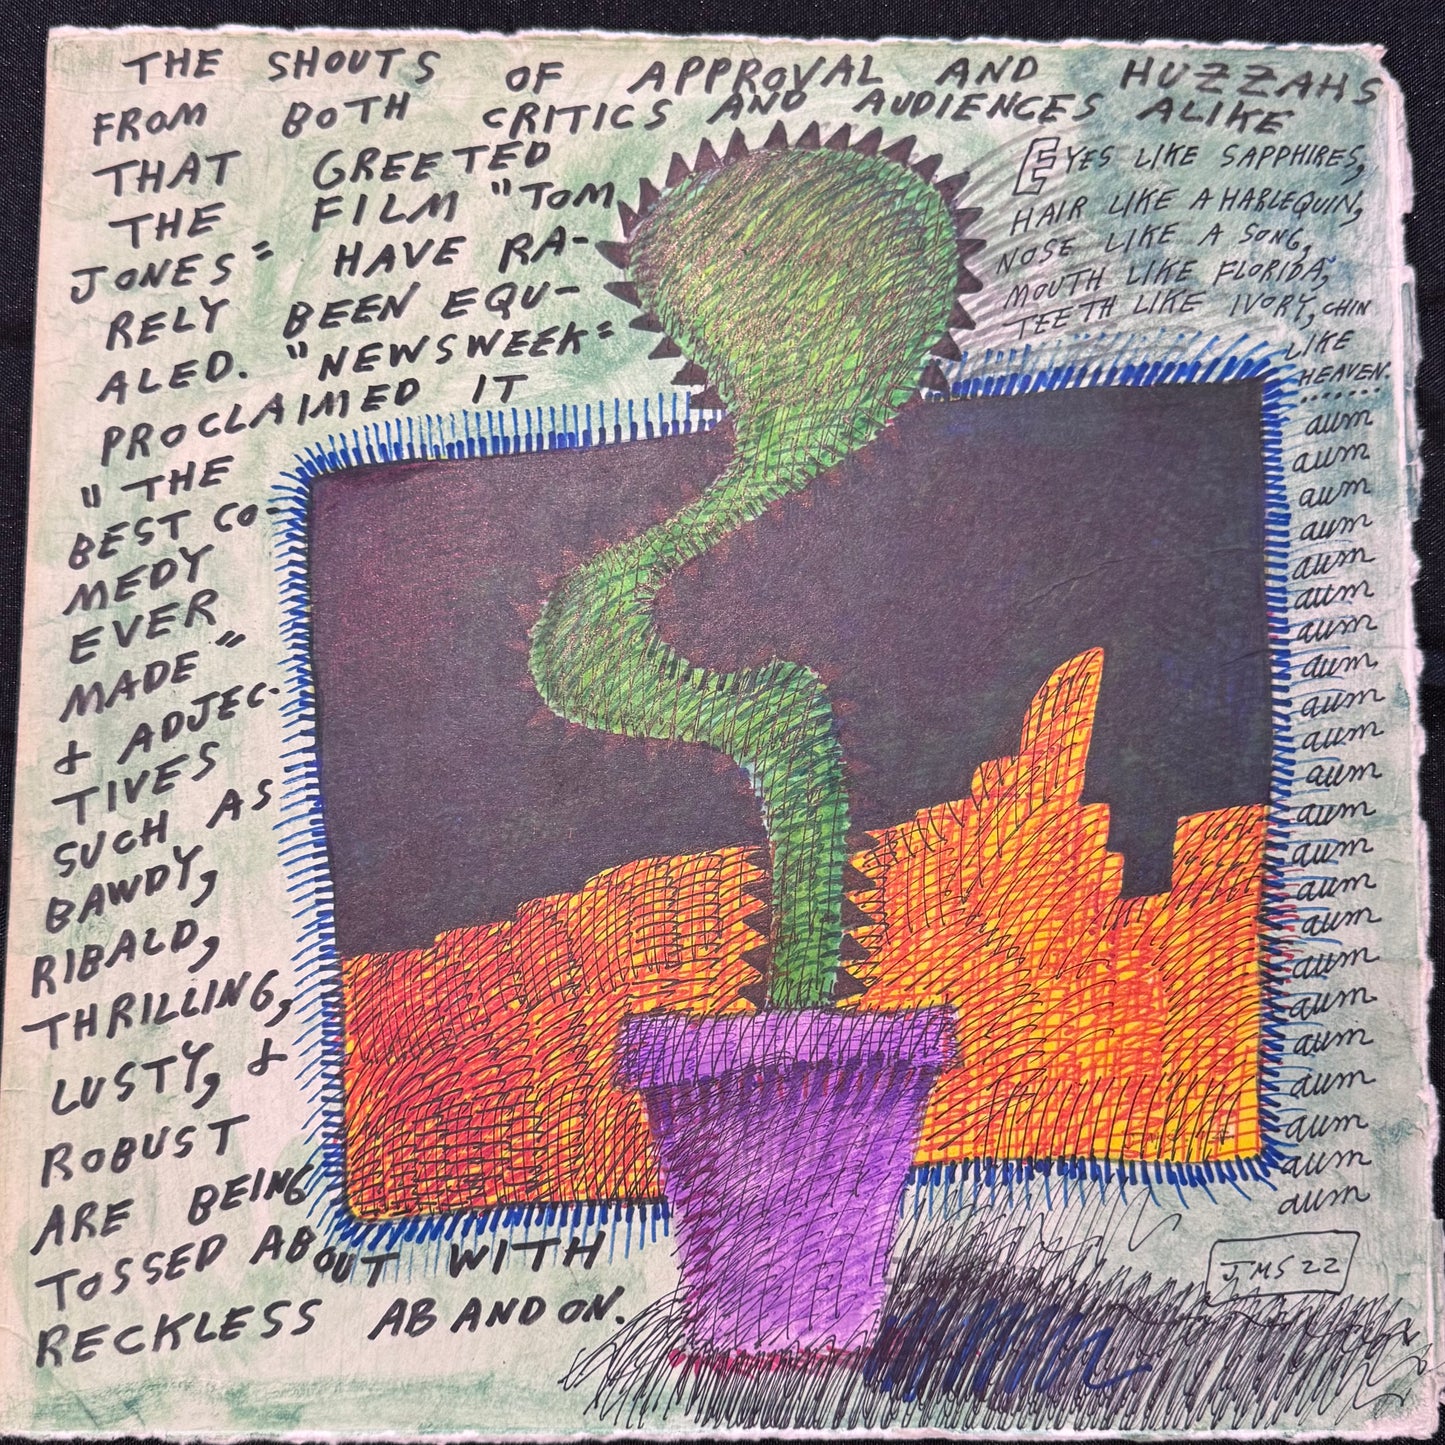 THE SHOUTS OF APPROVAL AND HUZZAHS
FROM BOTH CRITICS AND AUDIENCES ALIKE
THAT GREETED
THE FILM "TOM
JONES" HAVE RA-
RELY BEEN EQU-
ALED. "NEWSWEEK"
PROCLAIMED IT
"THE
BEST CO-
MEDY
EVER
MADE"
& ADJEC-
TIVES
SUCH AS
BAWDY,
RIBALD,
THRILLING,
LUSTY, &
ROBUST
ARE BEING
TOSSED ABOUT WITH
RECKLESS ABANDON.
EYES LIKE SAPPHIRES,
HAIR LIKE A HARLEQUIN,
NOSE LIKE A SONG,
MOUTH LIKE FLORIDA,
TEETH LIKE IVORY, CHIN
LIKE
HEAVEN.
.......
aum
aum
aum
aum
aum
aum
aum
aum
aum
aum
aum
aum
aum
aum
aum
aum
aum
aum
aum
aum
aum
aum
JMS 22